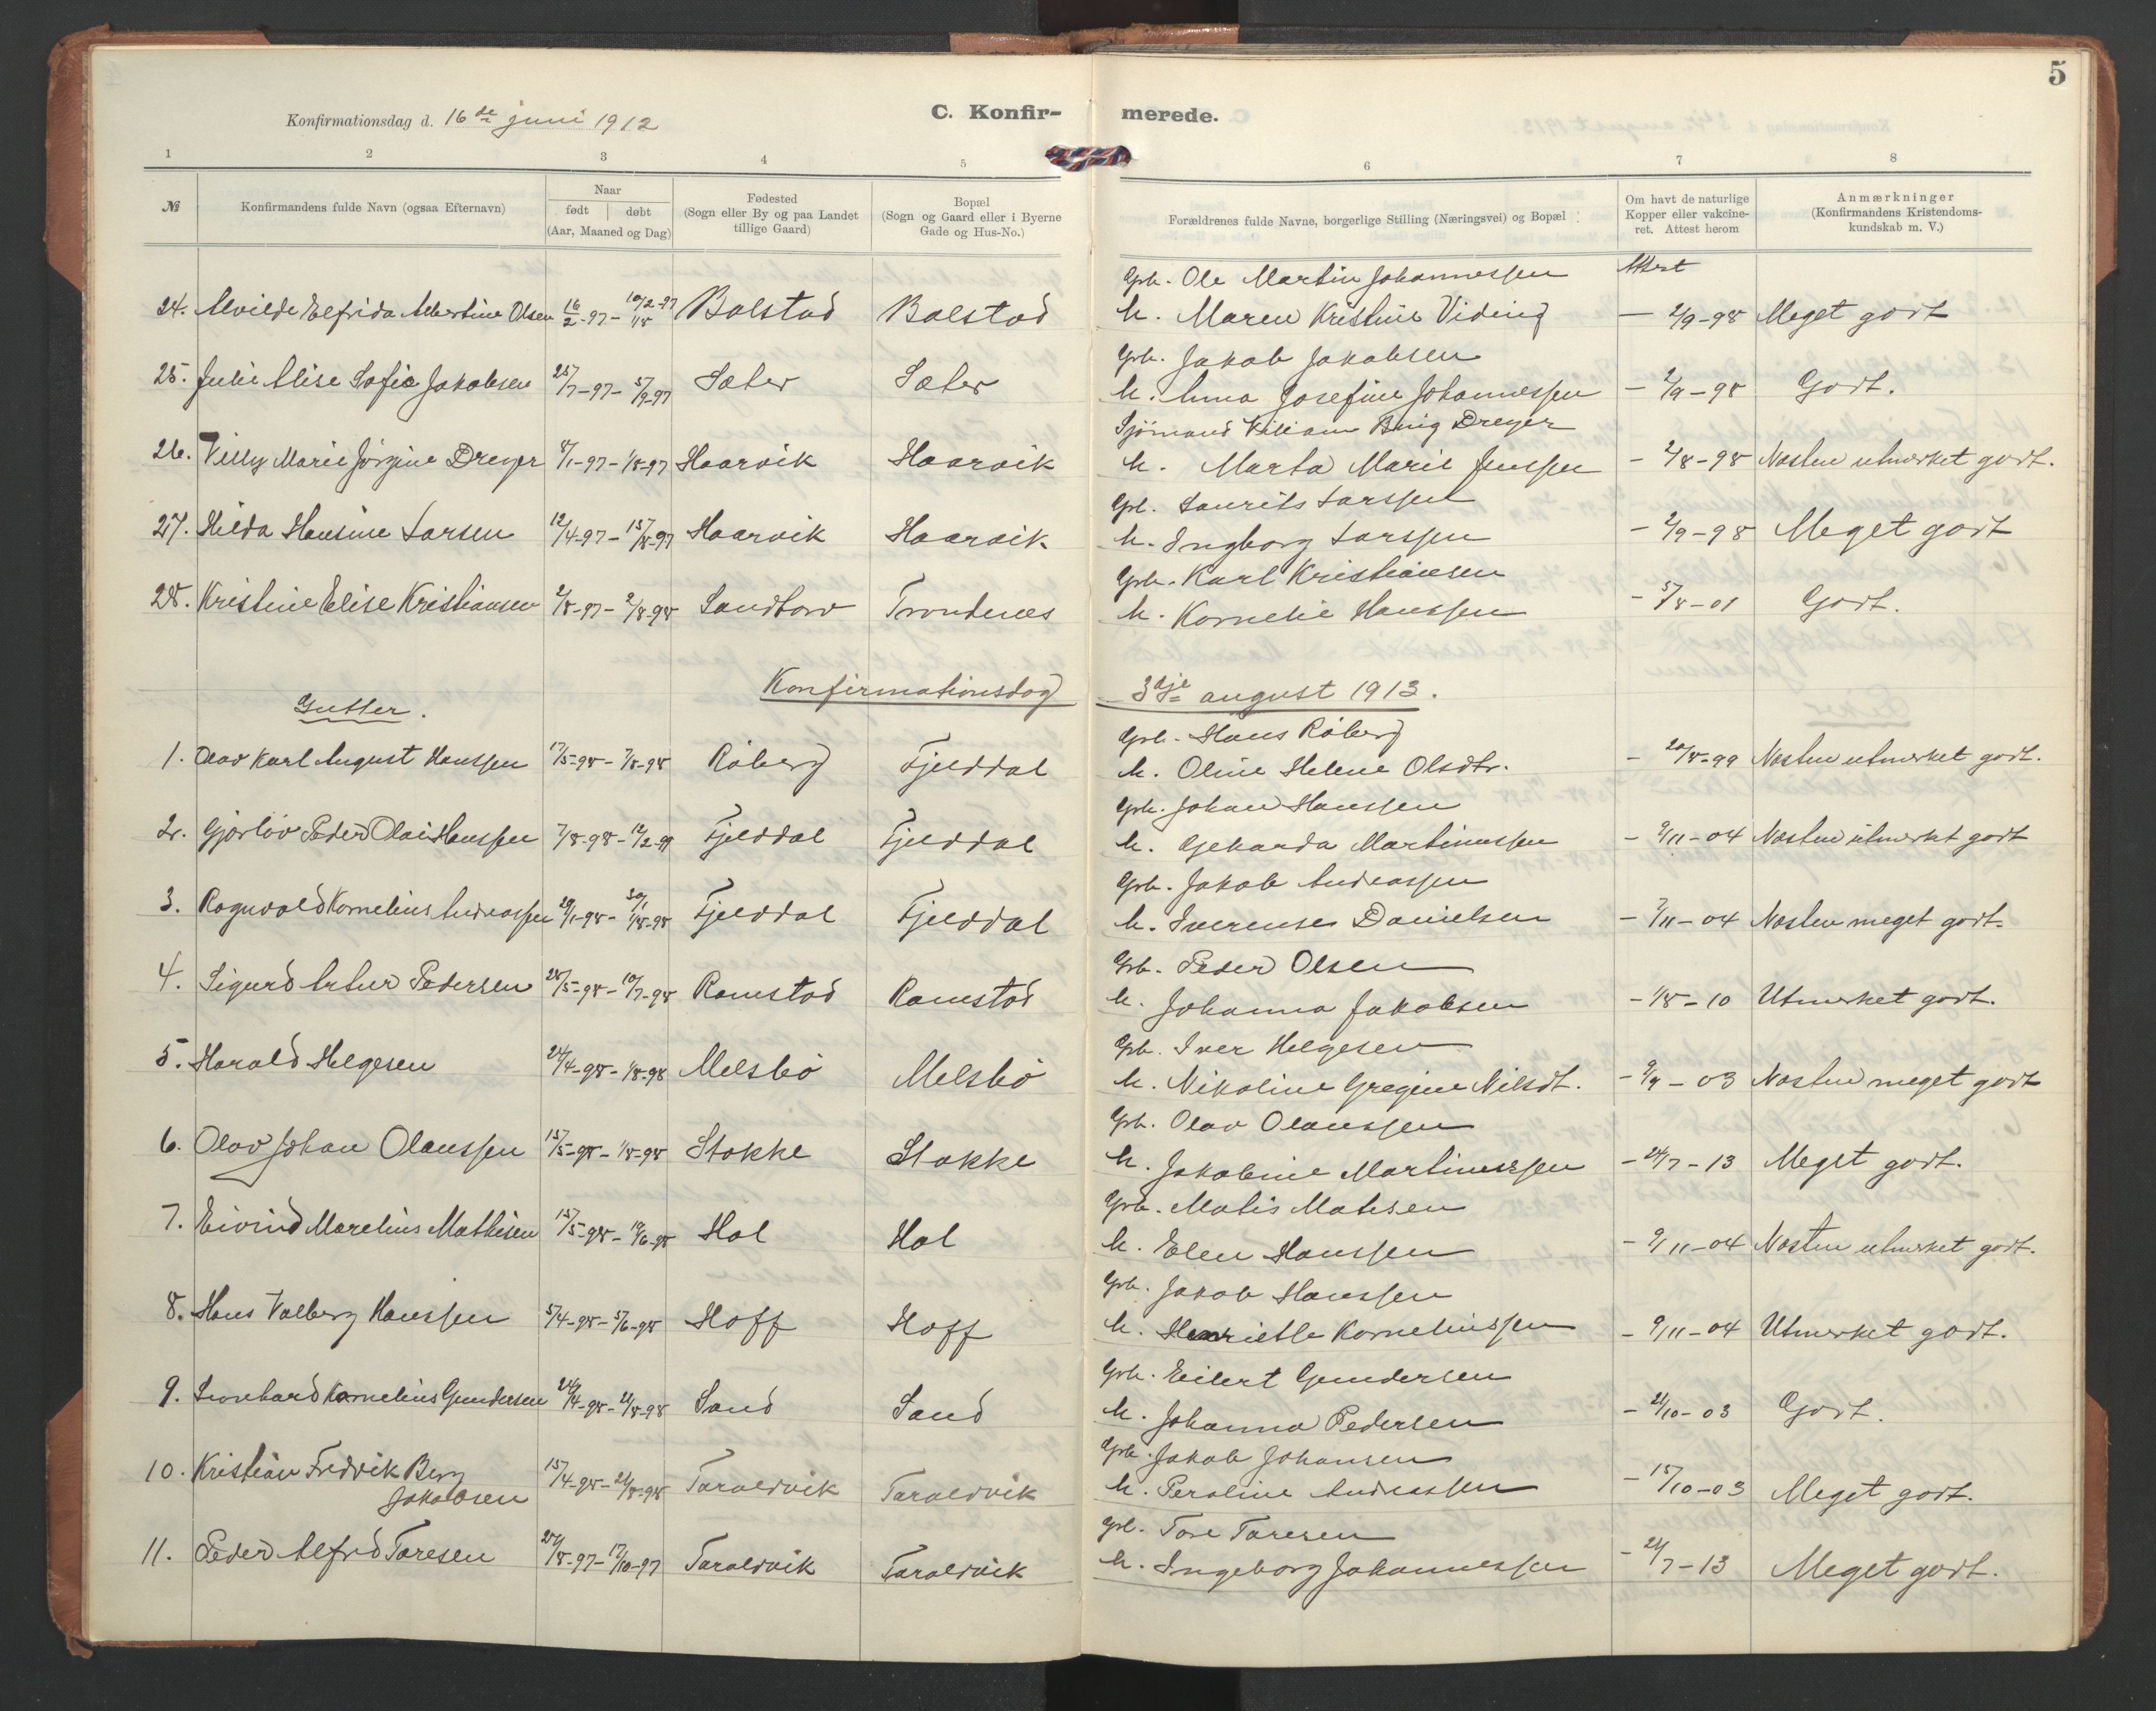 5
Konfirmationsdag d. 16de juni 1912
C. Konfir- merede.
1 2 3 4 5 6 7 8
№ Konfirmandens fulde Navn (ogsaa Efternavn)
Naar født | døbt (Aar, Maaned og Dag)
Fødested (Sogn eller By og paa Landet tillige Gaard)
Bopæl (Sogn og Gaard eller i Byerne Gade og Hus-No.)
Forældrenes fulde Navne, borgerlige Stilling (Næringsvei) og Bopæl
Om havt de naturlige Kopper eller vakcineret. Attest herom
Anmærkninger (Konfirmandens Kristendomskundskab m. V.)
Gbr. Ole Martin Johannessen Attest
24. Alvilde Elfrida Albertine Olsen 16/2-97 - Bolstad Bolstad h. Maren Kristine Viding - 2/9-98 Meget godt
Gbr. Jakob Jakobsen
25. Julie Elise Sofie Jakobsen 25/7-97 - 5/9-97 Sæter Sæter h. Anna Josefine Johannessen - 2/9-98 Godt.
Sjömand William Dreyer
26. Villy Marie Jörgine Dreyer 8/1-97 - 1/8-97 Haarvik Haarvik h. Marta Marie Jenssen - 2/8-98 Næsten utmerket godt.
Gbr. Laurits Larssen
27. Hilda Hansine Larsen 12/4-97 - 15/8-97 Haarvik Haarvik h. Ingborg Larssen - 2/9-98 Meget godt
Gbr. Karl Kristiansen
28. Kristine Elise Kristiansen 2/8-97 - 2/8-98 Sandtorv Trondenes h. Kornelie Hanssen - 5/8-01 Godt.
Konfirmationsdag 3dje august 1913.
Gutter.
Gbr. Hans Råberg
1. Olav Karl August Hanssen 17/5-98 - 7/8-98 Råberg Fjelddal h. Oline Helene Olsdtr. - 20/8-99 Næsten utmerket godt.
Gbr. Johan Hanssen
2. Gjerlöv Peder Olai Hanssen 7/8-98 - 12/2-99 Fjelddal Fjelddal h. Gekarda Martinussen - 9/11-04 Næsten utmerket godt
Gbr. Jakob Andreassen
3. Ragnvald Kornelius Andreassen 29/1-98 - 30/1 1/8-98 Fjelddal Fjelddal h. Iverense Danielsen - 7/11-04 Næsten meget godt.
Gbr. Peder Olsen
4. Sigurd Artur Pedersen 28/5-98 - 10/7-98 Ramstad Ramstad h. Johanna Jakobsen - 1/8-10 Utmerket godt.
Gbr. Iver Helgesen
5. Harald Helgesen 24/4-98 - 1/8-98 Melsbö Melsbö h. Nikoline Gregine Nilsdt. - 9/9-03 Næsten meget godt
Gbr. Olav Olaussen
6. Olav Johan Olaussen 15/5-98 - 1/8-98 Stokke Stokke h. Jakobine Martinussen - 24/7-13 Meget godt.
Gbr. Matis Matisen
7. Eivind Marelius Mathisen 15/5-98 - 19/6-98 Hol Hol h. Elen Hanssen - 9/11-04 Næsten utmerket godt.
Gbr. Jakob Hanssen
8. Hans Valberg Hanssen 5/4-98 - 5/6-98 Hoff Hoff h. Henriette Korneliussen - 9/11-04 Utmerket godt.
Gbr. Eilert Gundersen
9. Leonhard Kornelius Gundersen 24/4-98 - 21/8-98 Sand Sand h. Johanna Pedersen - 21/10-03 Godt.
Gbr. Jakob Johansen
10. Kristian Fredrik Berg Jakobsen 15/4-98 - 21/8-98 Taraldvik Taraldvik h. Peroline Andreassen - 15/10-03 Meget godt.
Gbr. Tore Toresen
11. Peder Alfred Toresen 28/8-97 - 17/10-97 Taraldvik Taraldvik h. Ingeborg Johannessen - 24/7-13 Meget godt.